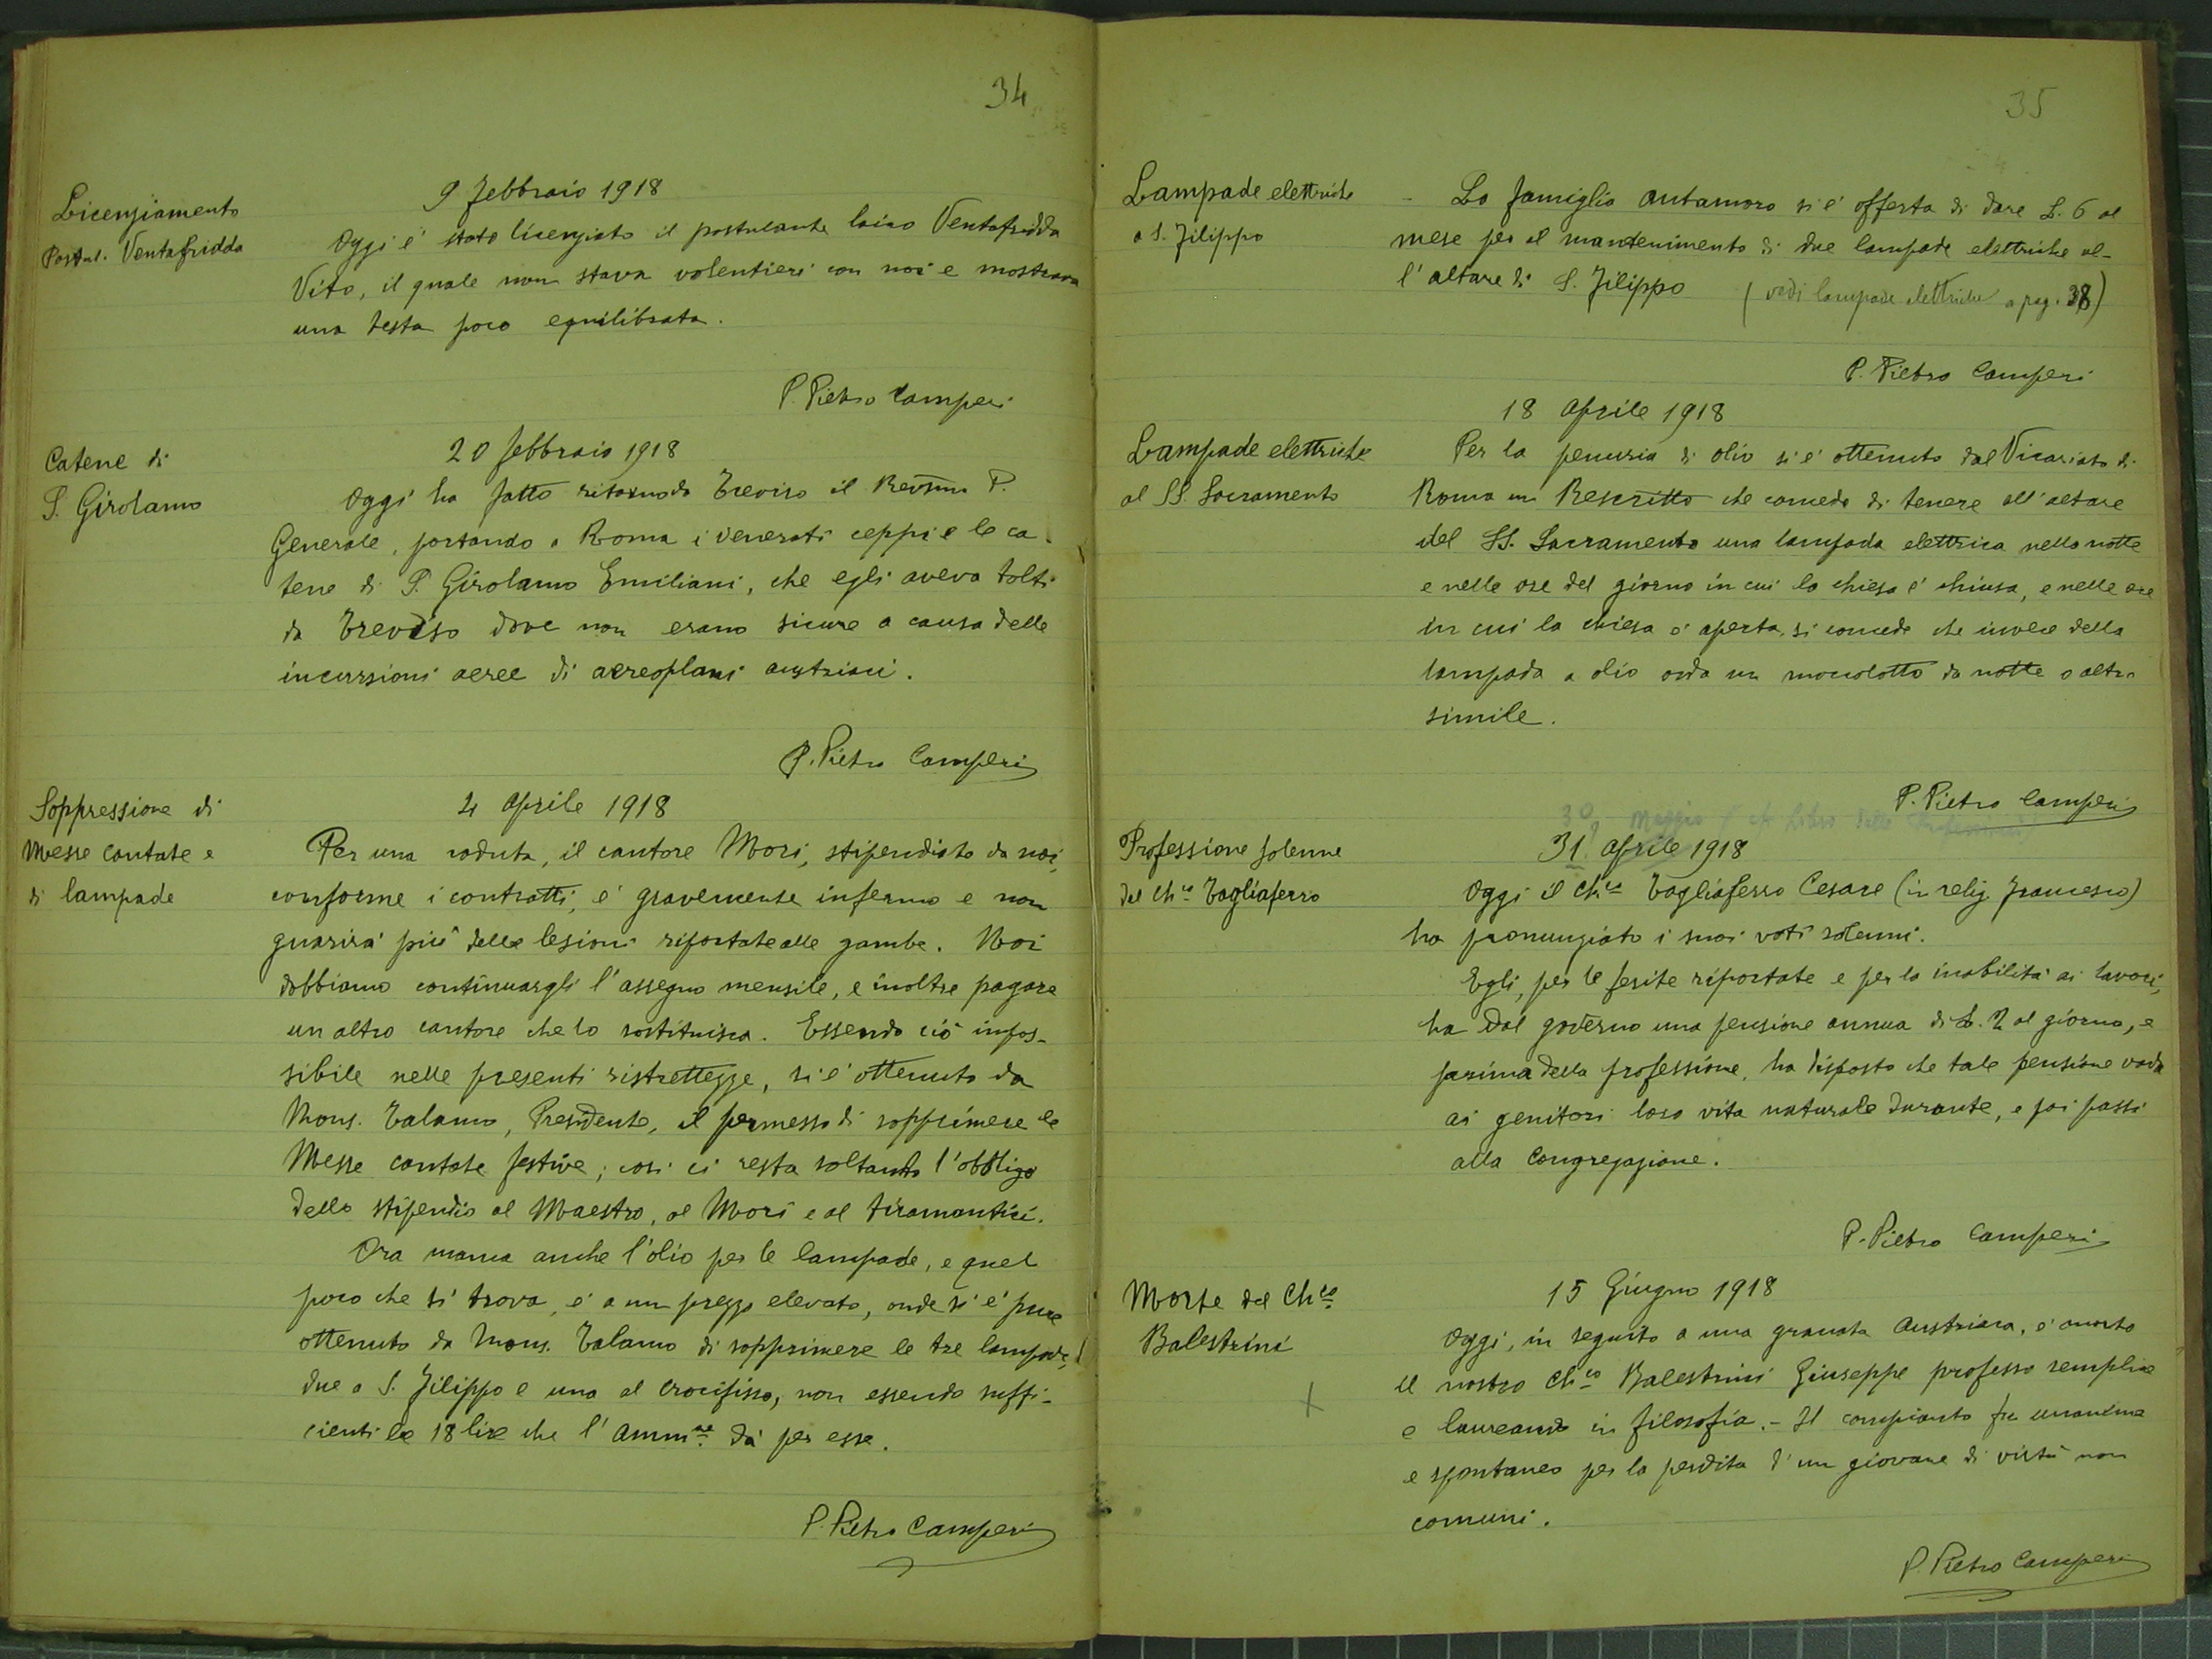 34
Licenziamento
Postul. Ventafridda
9 febbraio 1918
Oggi è stato licenziato il postulante laico Ventafridda
Vito, il quale non stava volentieri con noi e mostrava
una testa poco equilibrata.
P. Pietro Camperi
Catene di
S. Girolamo
20 febbraio 1918
Oggi ha fatto ritorno da Treviso il Revsmo P.
Generale, portando a Roma i venerati ceppi e le ca-
tene di S. Girolamo Emiliani, che egli aveva tolti
da Treviso dove non erano sicure a causa delle
incursioni aeree di aereoplani austriaci.
P. Pietro Camperi
Soppressione di
Messe cantate e
di lampade
4 Aprile 1918
Per una caduta, il cantore Mori, stipendiato da noi,
conforme i contratti, è gravemente infermo e non
guarirà più delle lesioni riportate alle gambe. Noi
dobbiamo continuargli l'assegno mensile, e inoltre pagare
un altro cantore che lo sostituisca. Essendo ciò impos-
sibile nelle presenti ristrettezze, si è ottenuto da
Mons. Talamo, Presidente, il permesso di sopprimere le
Messe cantate festive; così ci resta soltanto l'obbligo
dello stipendio al Maestro, al Mori e al tiramantici.
Ora manca anche l'olio per le lampade, e quel
poco che si trova, è a un prezzo elevato, onde si è pure
ottenuto da Mons. Talamo di sopprimere le tre lampade,
due a S. Filippo e una al Crocifisso, non essendo suffi-
cienti le 18 lire che l'Ammne dà per esse.
P. Pietro Camperi
35
Lampade elettriche
a S. Filippo
- La famiglia Antamoro si è offerta di dare L. 6 al
mese per il mantenimento di due lampade elettriche al-
l'altare di S. Filippo (vedi lampade elettriche a pag. 38)
P. Pietro Camperi
Lampade elettriche
al SS. Sacramento
18 Aprile 1918
Per la penuria di olio si è ottenuto dal Vicariato di
Roma un Rescritto che concede di tenere all'altare
del SS. Sacramento una lampada elettrica nella notte
e nelle ore del giorno in cui la chiesa è chiusa, e nelle ore
in cui la chiesa è aperta, si concede che invece della
lampada a olio arda un moccolotto da notte o altro
simile.
P. Pietro Camperi
30 Maggio (cf. Libro delle Professioni)
Professione solenne
del Chco Tagliaferro
31? Aprile 1918
Oggi il Chco Tagliaferro Cesare (in relig. Francesco)
ha pronunziato i suoi voti solenni.
Egli, per le ferite riportate e per la inabilità ai lavori,
ha dal governo una pensione annua di L. 2 al giorno, e
prima della professione, ha disposto che tale pensione vada
ai genitori loro vita naturale durante, e poi passi
alla Congregazione.
P. Pietro Camperi
Morte del Chco
Balestrini
15 Giugno 1918
Oggi, in seguito a una granata austriaca, è morto
il nostro Chco Balestrini Giuseppe professo semplice
e laureando in filosofia. - Il compianto fu unanime
e spontaneo per la perdita d'un giovane di virtù non
comuni.
P. Pietro Camperi